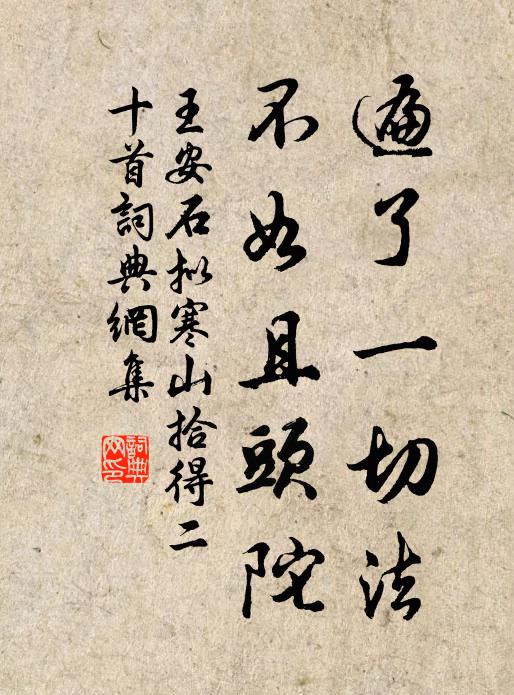 遍了一切法
不如且頭陀
王安石拟寒山拾得二
十首詞典網集
詞典网印